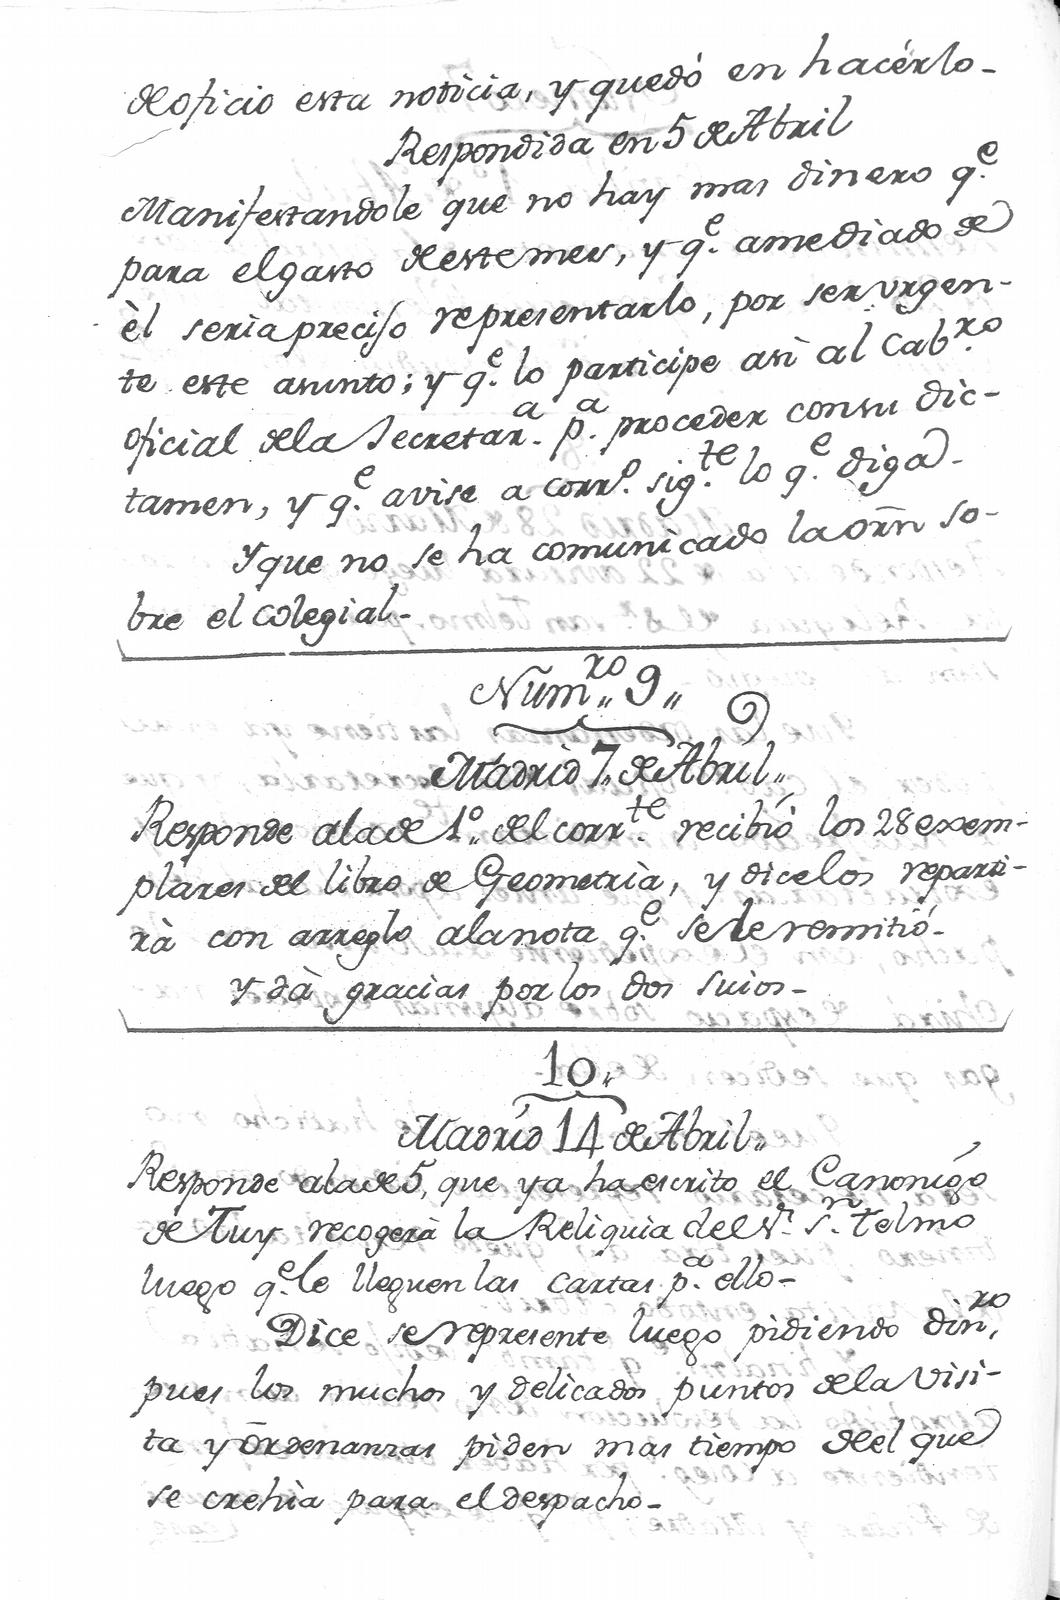 de oficio esta noticia, y quedó en hacérlo-
Respondida en 5 de Abril
Manifestandole que no hay mas dinero q.e
para el gasto de este mes, y q.e a mediado de
èl seria preciso representarlo, por ser urgen-
te este asunto; y q.e lo participe asi al Cab.ro
oficial de la Secretar.a p.a proceder con su dic-
tamen, y q.e avise a corr.o sig.te lo q.e diga-
Y que no se ha comunicado la orñ so-
bre el colegial-
Nũm.ro 9,,
Madrid 7,, de Abril,,
Responde a la de 1.o del corr.te recibió los 28 exem-
plares del libro de Geometrìa, y dicelos reparti-
rà con arreglo a la nota q.e se le remitió-
y dà gracias por los dos suios-
10,,
Madrid 14 de Abril,,
Responde a la de 5, que ya ha escrito el Canonigo
de Tuy recogerà la Reliquia del S.r S.n Telmo
luego q.e le lleguen las cartas p.a ello-
Dice se represente luego pidiendo din,ro
pues los muchos y delicados puntos de la Visi-
ta y Ordenanzas piden mas tiempo de el que
se crehia para el despacho-